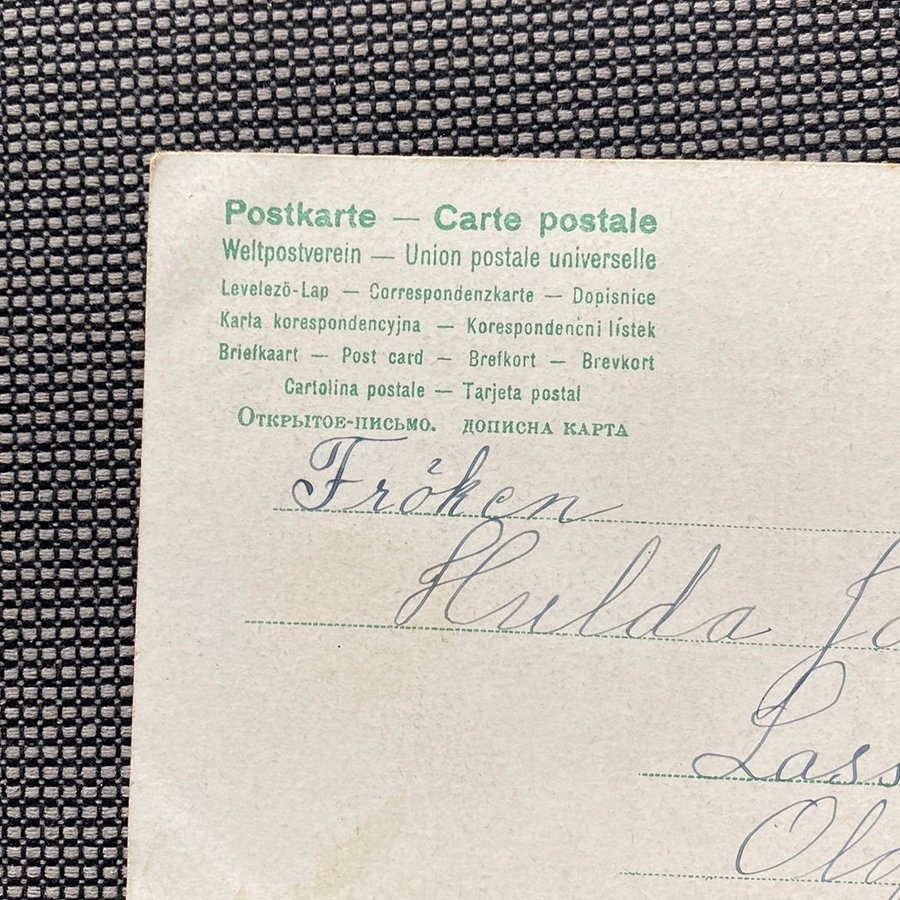 Postkarte — Carte postale
Weltpostverein — Union postale universelle
Levelezö-Lap — Correspondenzkarte — Dopisnice
Karta korespondencyjna — Korespondenčni lístek
Briefkaart — Post card — Brefkort — Brevkort
Cartolina postale — Tarjeta postal
Открытое-письмо. дописна карта
Fröken
Hulda